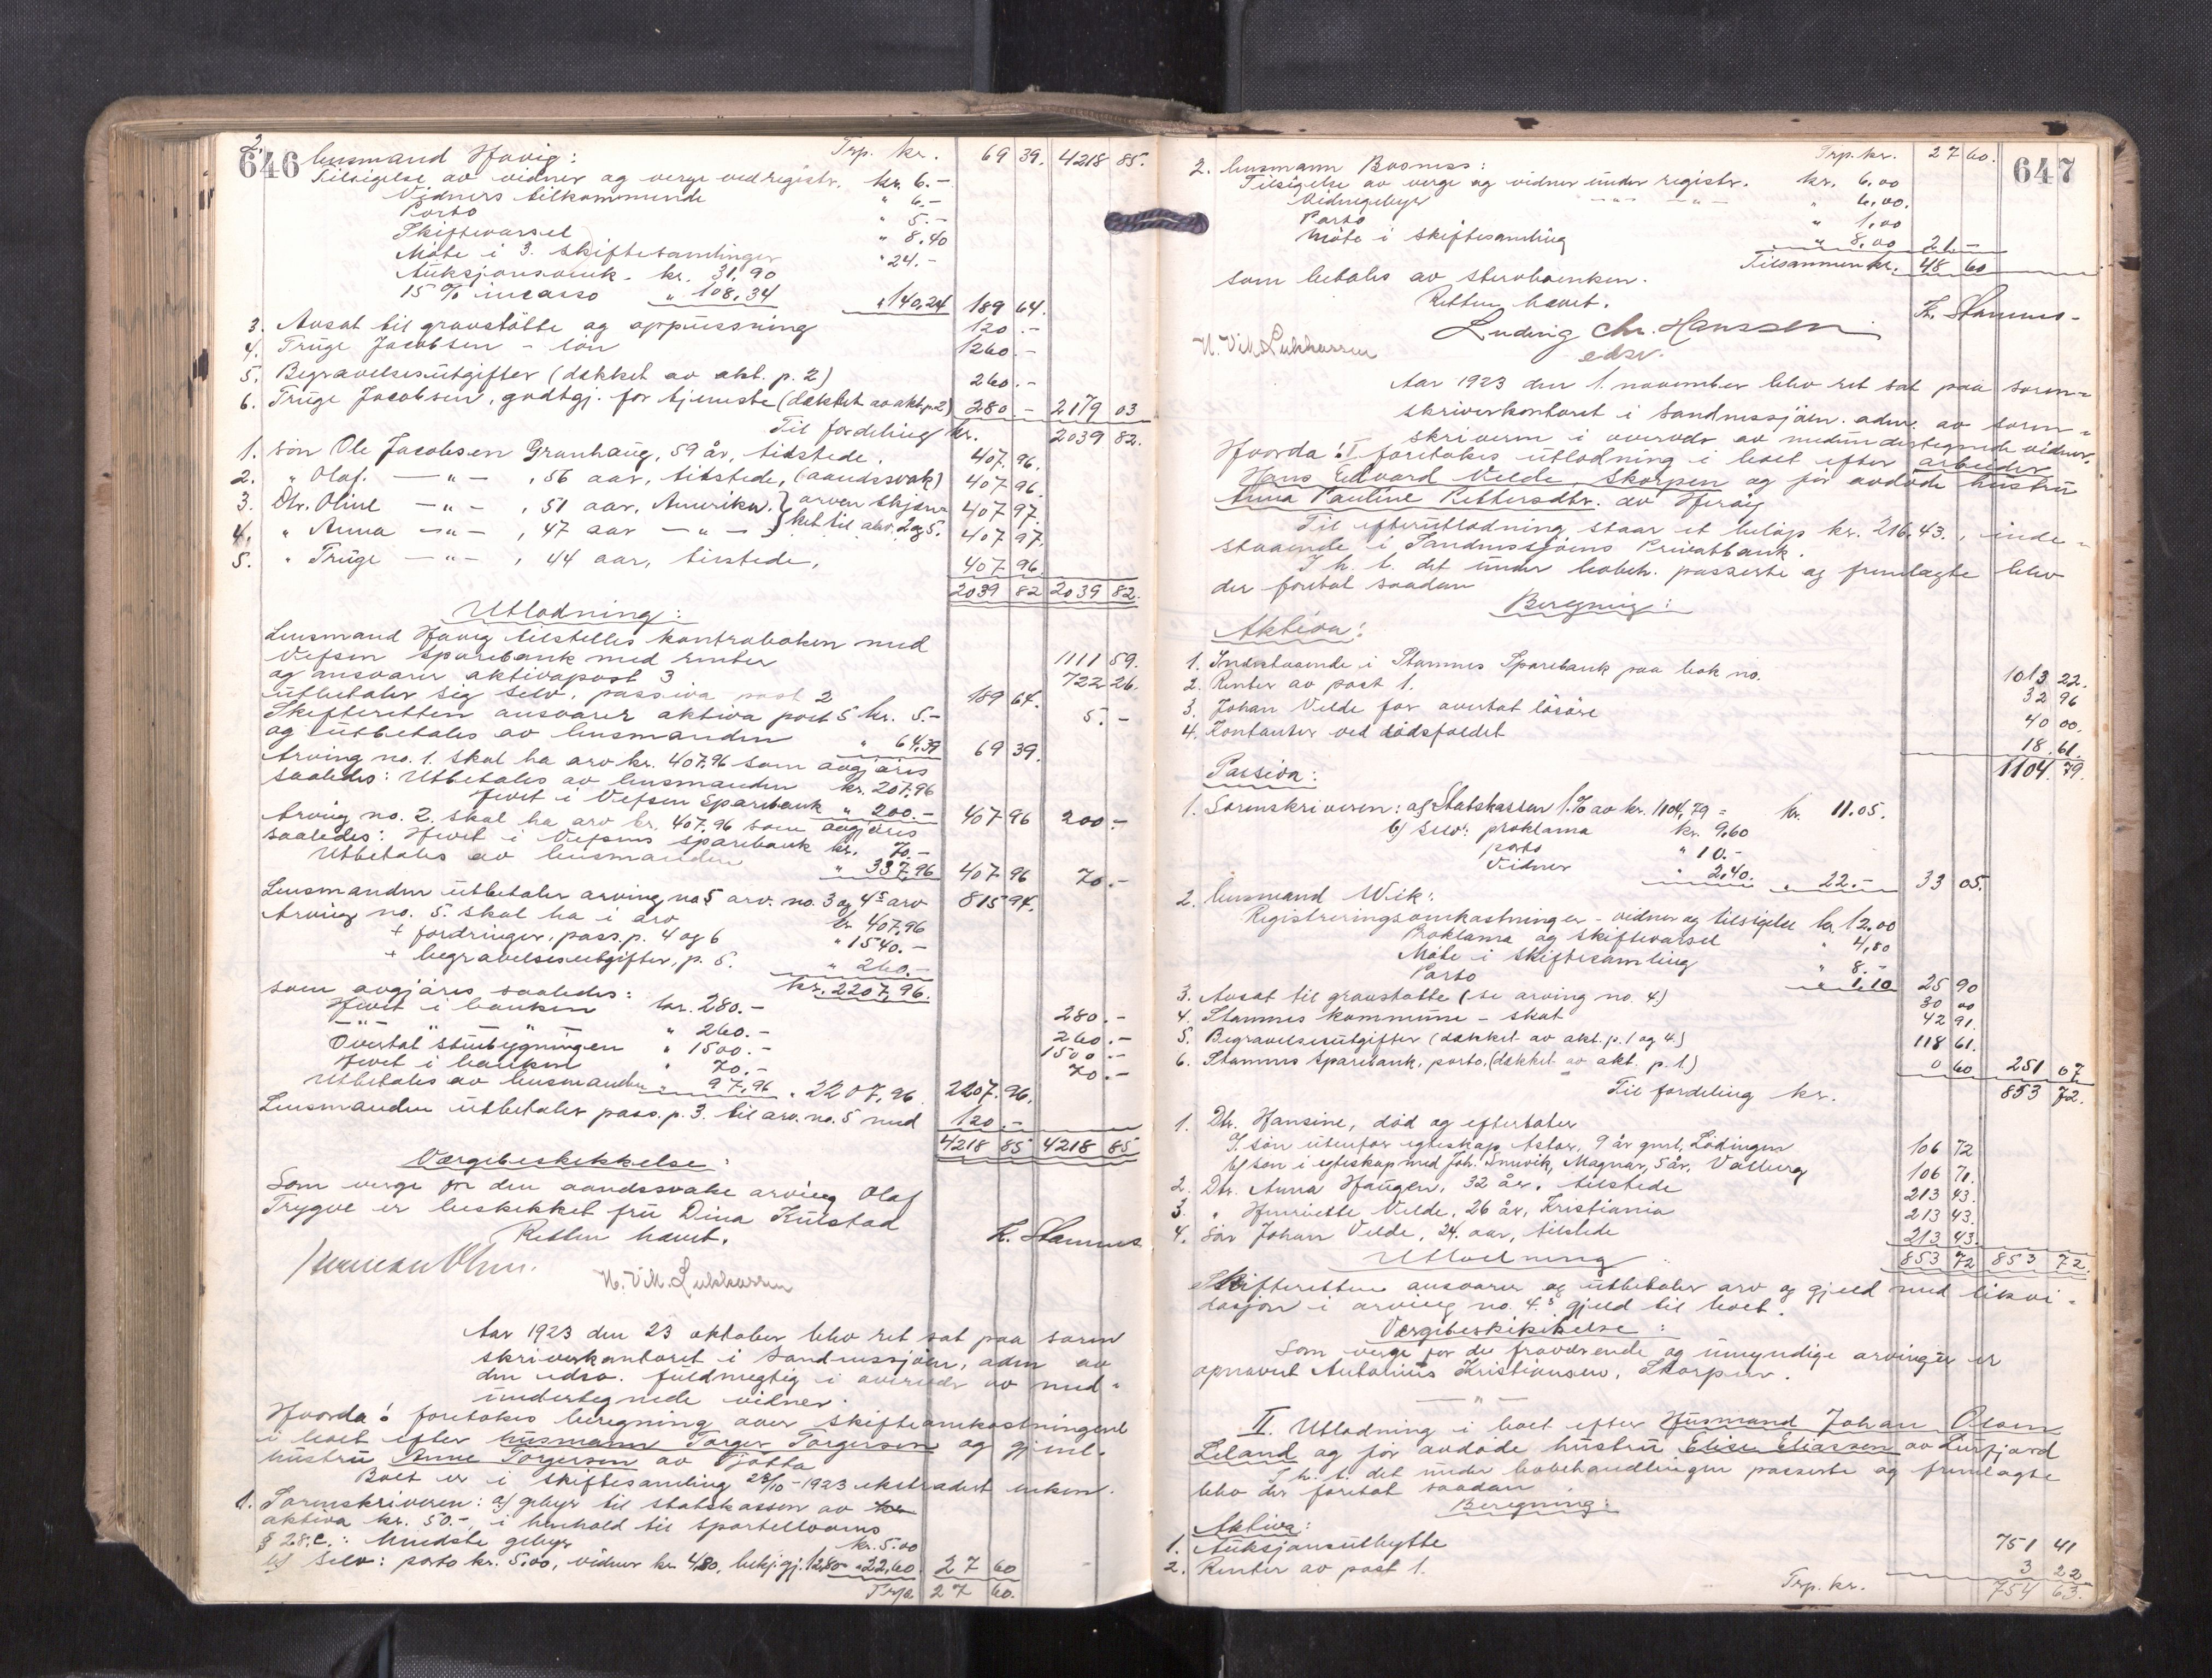 646
Trp. kr. 69 39. 4218 85.
2. lensmand Havig:
Tilsigelse av vidner og verge ved registr. kr. 6.-
Vidners tilkommende " 6.-
Porto " 5.-
Skiftevarsel " 8.40
Møte i 3. skiftesamlinger " 24.-
Auksjonsomk. kr. 31.90
15 % incasso " 108.34 " 140.24 189 64.
3. Avsat til gravstøtte og oppussning 120.-
4. Truge Jacobsen - løn 1260.-
5. Begravelsesutgifter (dækket av akt. p. 2) 260.-
6. Truge Jacobsen, godtgj. for tjeneste (dækket av akt. p. 2) 280.- 2179 03
Til fordeling kr. 2039 82.
1. søn Ole Jacobsen Granhaug, 59 år, tilstede. 407.96.
2. " Olaf. -"- , 56 aar, tilstede, (aandssvak) 407 96.
3. Dtr. Oline -"- , 51 aar, Amerika. } arven skjæn- 407 97.
4. " Anna -"- , 47 aar -"- } ket til arv. 2 og 5. 407 97.
5. " Truge -"- , 44 aar, tilstede, 407 96.
2039 82 2039 82.
Utlodning:
Lensmand Havig tilstilles kontraboken med
Vefsen Sparebank med renter 1111 59.
og ansvarer aktivapost 3 722 26.
utbetaler sig selv, passiva post 2 189 64.
Skifteretten ansvarer aktiva post 5 kr. 5.- 5.-
og utbetales av lensmanden " 64.39 69 39.
Arving no. 1. skal ha arv kr. 407.96 som avgjøres
saaledes: Utbetales av lensmanden kr. 207.96
Hevet i Vefsen Sparebank " 200.- 407 96 200.-
Arving no. 2. skal ha arv kr. 407.96 som avgjøres
saaledes: Hevet i Vefsens sparebank kr. 70.-
Utbetales av lensmanden " 337.96 407 96 70.-
Lensmanden utbetaler arving no 5 arv. no. 3 og 4s arv 815 94.
Arving no. 5. skal ha i arv kr 407,96
+ fordringer, pass. p. 4 og 6 " 1540.-
+ begravelsesutgifter, p. 5. " 260.-
kr. 2207,96.
som avgjøres saaledes:
Hevet i banken kr. 280.- 280.-
-"- " - " 260.- 260.-
Overtat stuebygningen " 1500.- 1500.-
Hevet i banken " 70.- 70.-
Utbetales av lensmanden " 97.96 . 2207.96 2207.96.
Lensmanden utbetaler pass. p. 3. til arv. no. 5 med 120.-
4218 85 4218 85
Værgebeskikkelse:
Som verge for den aandssvake arving Olaf
Trygve er beskikket fru Dina Kulstad
Retten hævet.
H. Stamnes
N. Vik Lukkassen
Aar 1923 den 23 oktober blev ret sat paa soren
skriverkontoret i Sandnessjøen, adm av
den edsv. fuldmegtig i overvær av med-
undertegnede vidner.
Hvorda: foretokes beregning over skifteomkostningene
i boet efter husmann Torger Torgersen og gjenl.
hustru Anne Torgersen av Tjøtta
Boet er i skiftesamling 23/10-1923 ekstradert enken.
1. Sorenskriveren: a) gebyr til statskassen av kr
aktiva kr. 50.-, i henhold til sportellovens
§ 28.c.: mindste gebyr kr. 5.00
b) Selv: porto kr. 5.00, vidner kr. 4.80, bekj.gj. 12.80 " 22.60. 27 60
Trp. 27 60.
647
Trp. kr. 27 60.
2. lensmann Booness:
Tilsigelse av verge og vidner under registr. kr. 6.00
Vidnegebyr -"- -"- " 6.00.
Porto " 1.00
Møte i skiftesamling " 8.00 21.-
Tilsammen kr. 48 60
som betales av stervboenken.
Retten hævet.
H. Stamnes-
N. Vik Lukkassen Ludvig Chr. Hanssen
edsv.
Aar 1923 den 1. november blev ret sat paa soren-
skriverkontoret i Sandnessjøen. adm. av soren-
skriveren i overvær av medundertegnede vidner.
Hvorda: I foretokes utlodning i boet efter arbeider
Hans Edvard Velde, Skorpen og før avdøde hustru
Anna Pauline Pettersdtr. av Herøy
Til efterutlodning staar et beløp kr. 216,43., inde-
staaende i Sandnessjøens Privatbank.
I h. t. det under bobeh. passerte og fremlagte blev
der foretat saadan
Beregning:
Aktiva:
1. Indestaaende i Stamnes Sparebank paa bok no. 1013 22.
2. Renter av post 1. 32 96
3. Johan Velde for overtat løsøre 40 00.
4. Kontanter ved dødsfaldet 18.61.
1104.79.
Passiva:
1. Sorenskriveren: a) Statskassen 1.% av kr. 1104,79 = kr. 11.05.
b) selv: proklama kr. 9.60
porto " 10.-
Vidner " 2.40. " 22.- 33 05.
2. lensmand Wik:
Registreringsomkostninger - vidner og tilsigelse kr 12.00
Proklama og skiftevarsel " 4,80
Møte i skiftesamling " 8.-
Porto " 1.10 25 90
3. Avsat til gravstøtte (se arving no. 4) 30 00
4. Stamnes kommune - skat 42 91.
5. Begravelsesutgifter (dækket av akt. p. 1 og 4.) 118 61.
6. Stamnes Sparebank, porto, (dækket av akt. p. 1.) 0 60 251 07
Til fordeling kr. 853 72.
1. Dtr. Hansine, død og efterlater
a) søn utenfor egteskap Astor, 9 år gml, Lødingen 106 72
b) søn i egteskap med Joh. Smevik, Magnar, 5 år, Valberg 106 71.
2. Dtr. Anna Haugen, 32 år, tilstede 213 43.
3. " Henriette Velde, 26 år, Kristiania 213 43.
4. Søn Johan Velde, 24 aar, tilstede 213 43.
853 72 853 72.
Utlodning
Skifteretten ansvarer og utbetaler arv og gjeld med likvi-
dasjon i arving no. 4.s gjeld til boet.
Værgebeskikkelse:
Som verge for de fraværende og umyndige arvinger er
opnævnt Antonius Kristiansen, Skorpen.
-"-
II. Utlodning i boet efter Husmand Johan Olsen
Leland og før avdøde hustru Elise Eliassen av Leirfjord
I h. t. det under bobehandlingen passerte og fremlagte
blev der foretat saadan
Beregning:
Aktiva:
1. Auksjonsutbytte 751 41
2. Renter av post 1. 3 22
Trp. kr. 754 63.